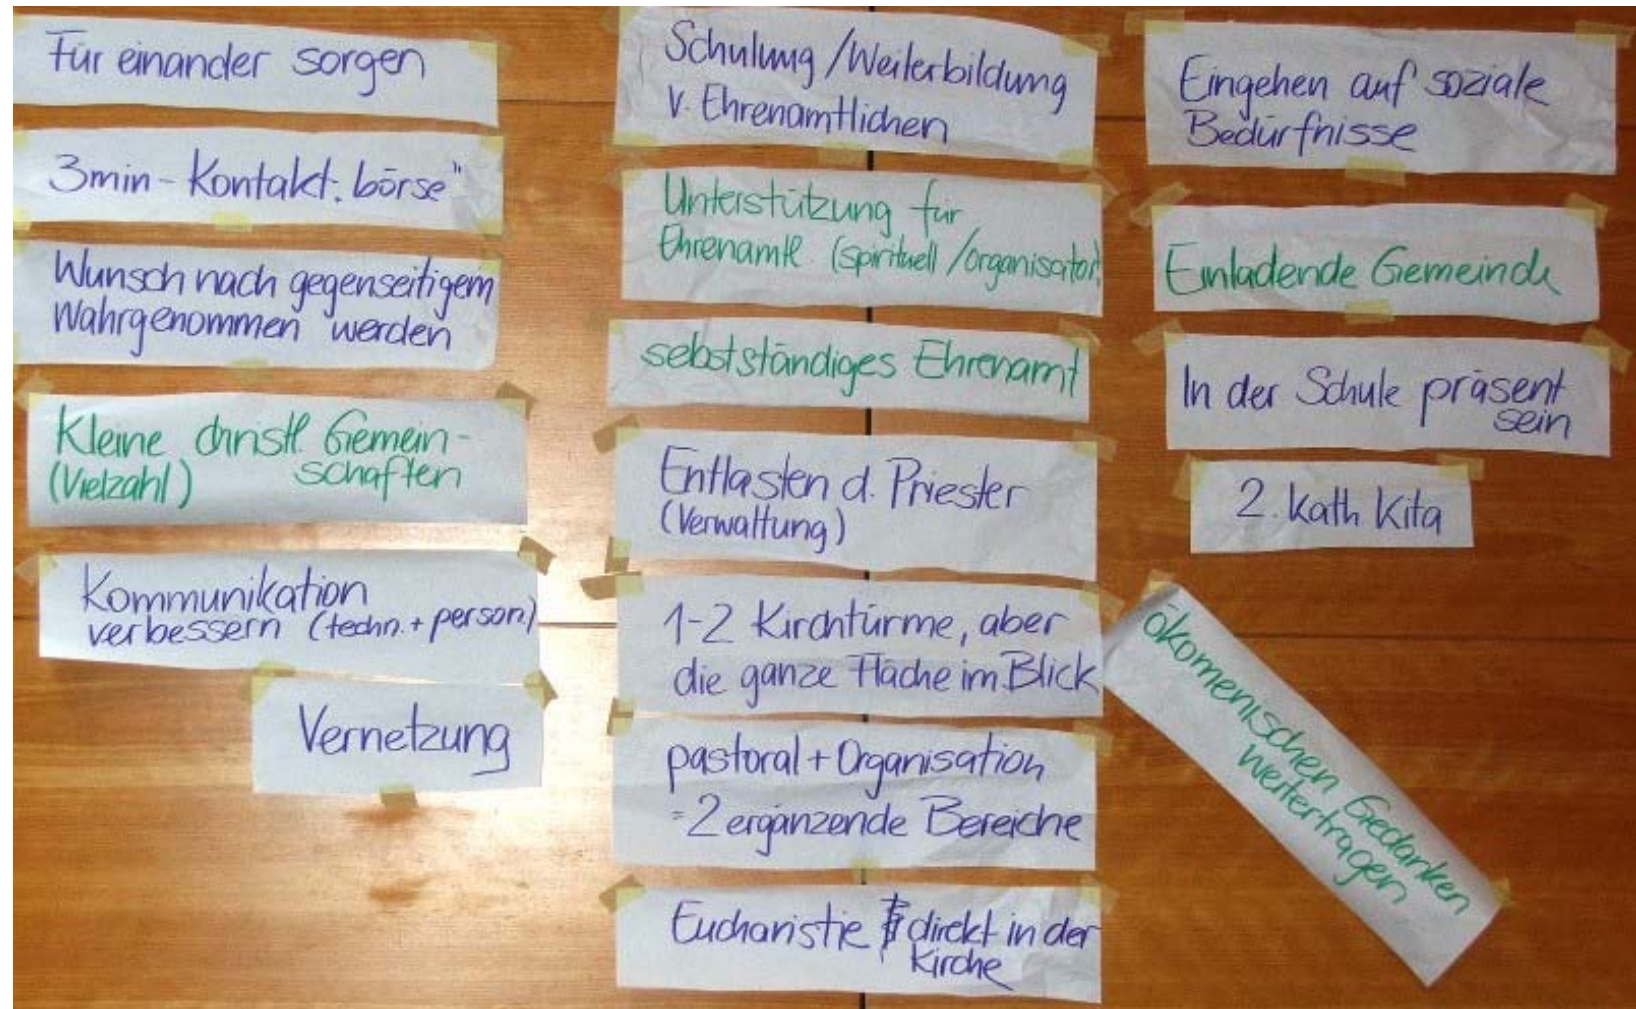 Für einander sorgen
3min - Kontakt. börse"
Wunsch nach gegenseitigem
Wahrgenommen werden
Kleine christl. Gemein-
(Vielzahl) schaften
Kommunikation
verbessern (techn. + person.)
Vernetzung
Schulung / Weiterbildung
v. Ehrenamtlichen
Unterstützung für
Ehrenamtl (spirituell / organisator.)
selbstständiges Ehrenamt
Entlasten d. Priester
(Verwaltung)
1-2 Kirchtürme, aber
die ganze Fläche im Blick
pastoral + Organisation
= 2 ergänzende Bereiche
Eucharistie direkt in der
Kirche
Eingehen auf soziale
Bedürfnisse
Einladende Gemeinde
In der Schule präsent
sein
2. kath Kita
ökomenischen Gedanken
weitertragen